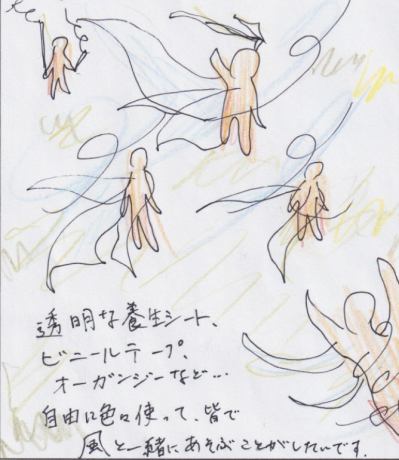 透明な養生シート、
ビニールテープ、
オーガンジーなど…
自由に色々使って、皆で
風と一緒にあそぶことがしたいです。